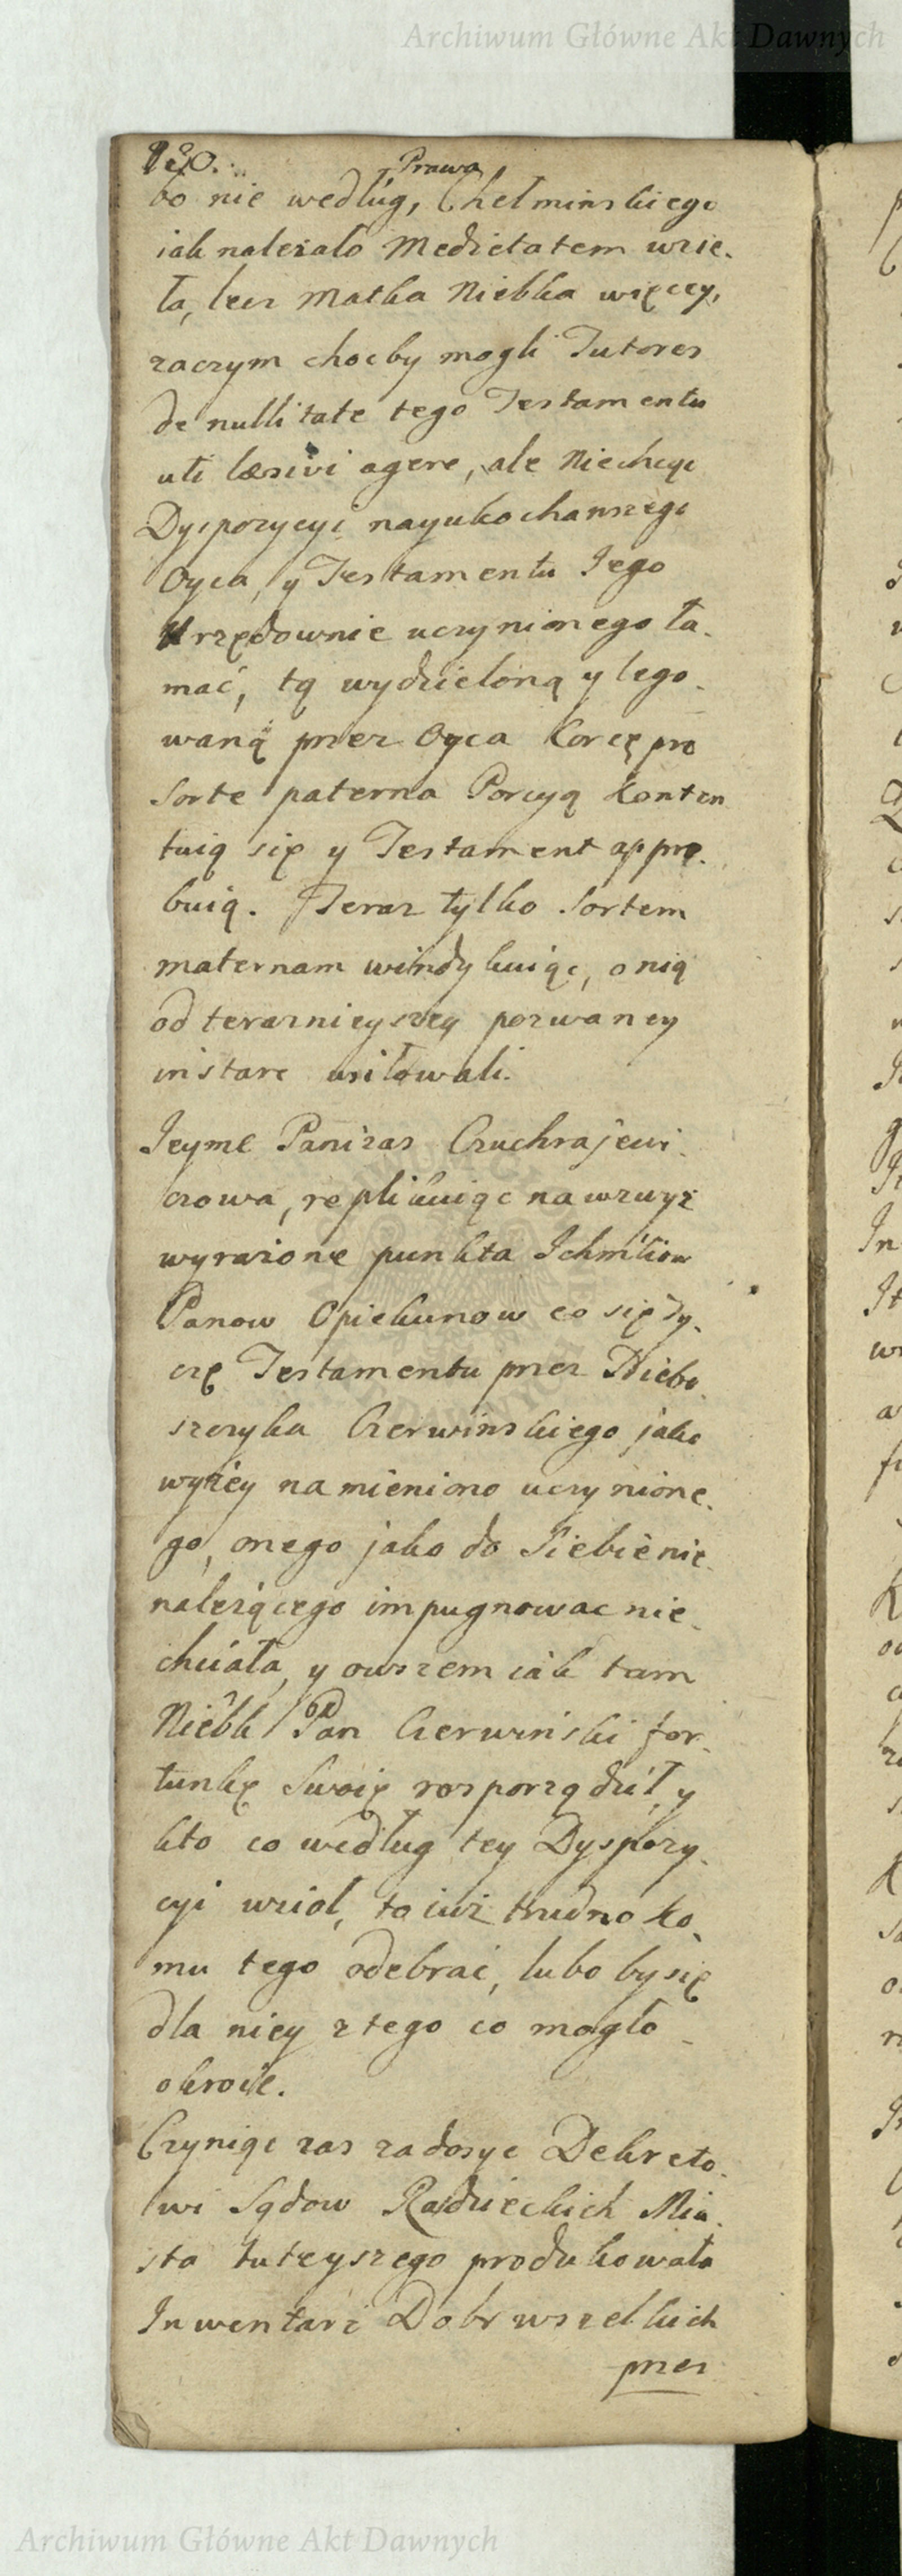 Archiwum Główne Akt Dawnych
Prawa
bo nie według, Chełminskiego
iak należało Medietatem wzie-
ła, lecz Matka Niebka więcey,
zaczym chocby mogli Tutores
de nullitate tego Testamentu
uti læsivi agere, ale Niechcąc
Dyspozycyi nayukochanszego
Oyca, y Testamentu Jego
Urzędownie uczynionego ła-
mać, tą wydzieloną y lego-
waną przez Oyca Corcę pro
Sorte paterna Porcyą konten
tuią się y Testament appro-
buią. Teraz tylko Sortem
maternam windykuiąc, o nią
od teraznieyszey pozwaney
instare usiłowali.
Jeymc Panizas Czuchrajewi-
czowa, replikuiąc na wzwyż
wyrażone punkta Ichmciow
Panow Opiekunow co się ty-
czę Testamentu przez Niebo-
szczyka Czerwinskiego jako
wyżey namieniono uczynione-
go, onego jako do Siebie nie-
należącego impugnowac nie-
chciała, y owszem iak tam
Niebk Pan Czerwiński for-
tunkę Swoię rozporządził, y
kto co według tey Dyspozy-
cyi wziol, to iuż trudno ko-
mu tego odebrać, lubo by się
dla niey z tego co mogło
okroić.
Czyniąc zas zadosyc Dekreto-
wi Sądow Radzieckich Mia-
sta tuteyszego produkowała
Inwentarz Dobr wszelkich
przez
Archiwum Główne Akt Dawnych